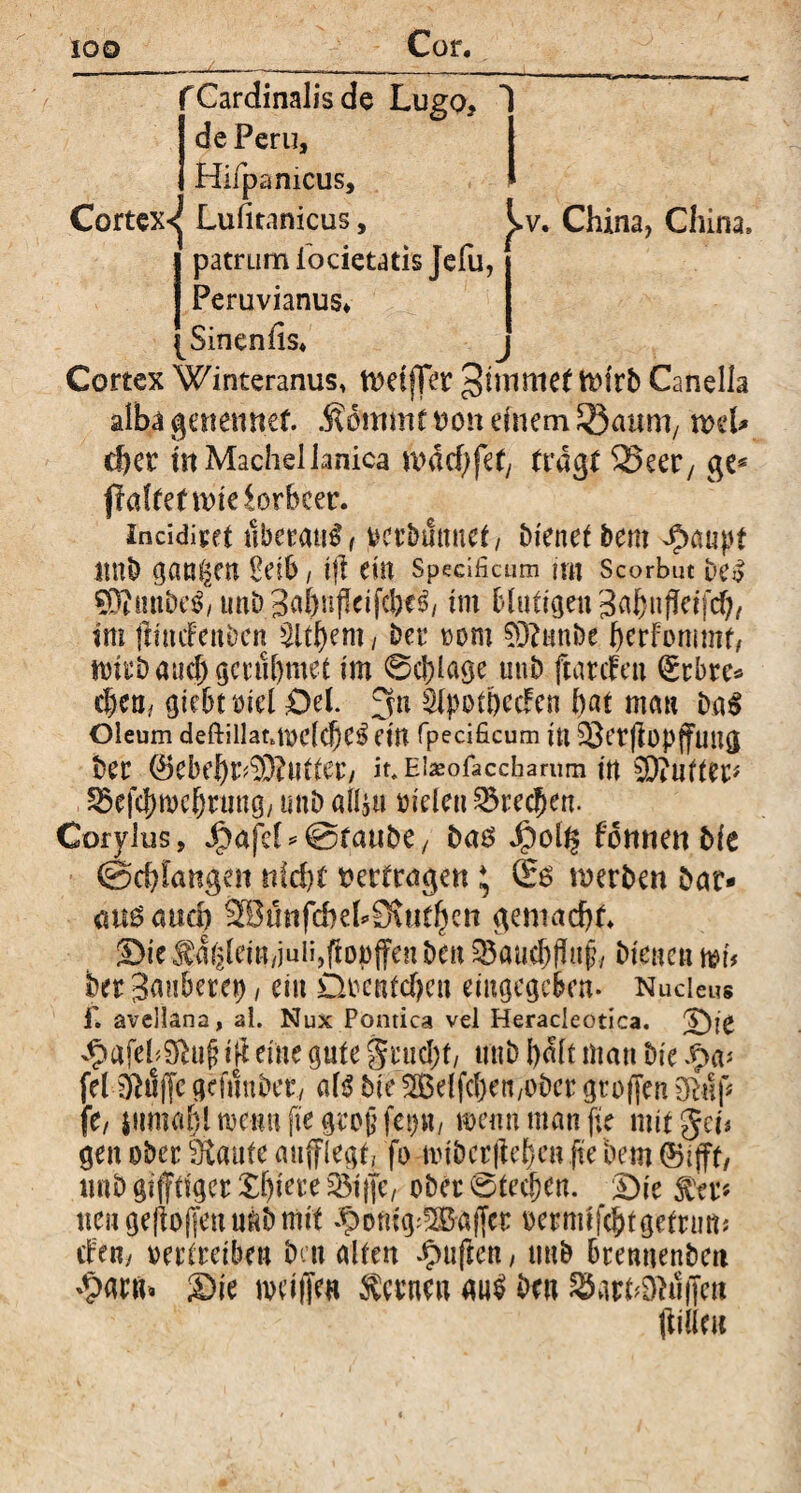 100 Cor.
Cardinalis de Lugo,
de Peru,
Hiſpanicus,
Cortex Luſitanicus, v. China, China.
patrum ſocietatis Jeſu,
Peruvianus.
Sinenſis.
Cortex Winteranus, weiſſer Zimmet wird Canella
alba genennet. Kömmt von einem Baum, wel-
cher in Machellanica wächſet, trägt Beer, ge-
ſtaltet wie Lorbeer.
Incidiret überaus, verdünnet, dienet dem Haupt
und gantzen Leib, iſt ein Specificum im Scorbut des
Mundes, und Zahnfleiſches, im blutigen Zahnfleiſch,
im ſtinckenden Athem, der vom Munde herkommt,
wird auch gerühmet im Schlage und ſtarcken Erbre-
chen, giebt viel Oel. In Apothecken hat man das
Oleum deſtillat. welches ein ſpecificum in Verſtopffung
der Gebehr-Mutter, it. Elæoſaccharum in Mutter-
Beſchwehrung, und allzu vielen Brechen.
Corylus, Haſel-Staude, das Holtz können die
Schlangen nicht vertragen; Es werden dar-
aus auch Wünſchel-Ruthen gemacht.
Die Kätzlein, juli, ſtopffen den Bauchfluß, dienen wi-
der Zauberey, ein Quentchen eingegeben. Nucleus
ſ. avellana, al. Nux Pontica vel Heracleotica. Die
Haſel-Nuß iſt eine gute Frucht, und hält man die Ha-
ſel Nüſſe geſünder, als die Welſchen, oder groſſen Nüſ-
ſe, zumahl wenn ſie groß ſeyn, wenn man ſie mit Fei-
gen oder Raute aufflegt, ſo widerſtehen ſie dem Gifft,
und gifftiger Thiere Biſſe, oder Stechen. Die Ker-
nen geſtoſſen und mit Honig-Waſſer vermiſcht getrun-
cken, vertreiben den alten Huſten, und brennenden
Harn. Die weiſſen Kernen aus den Bart-Nüſſen
ſtillen